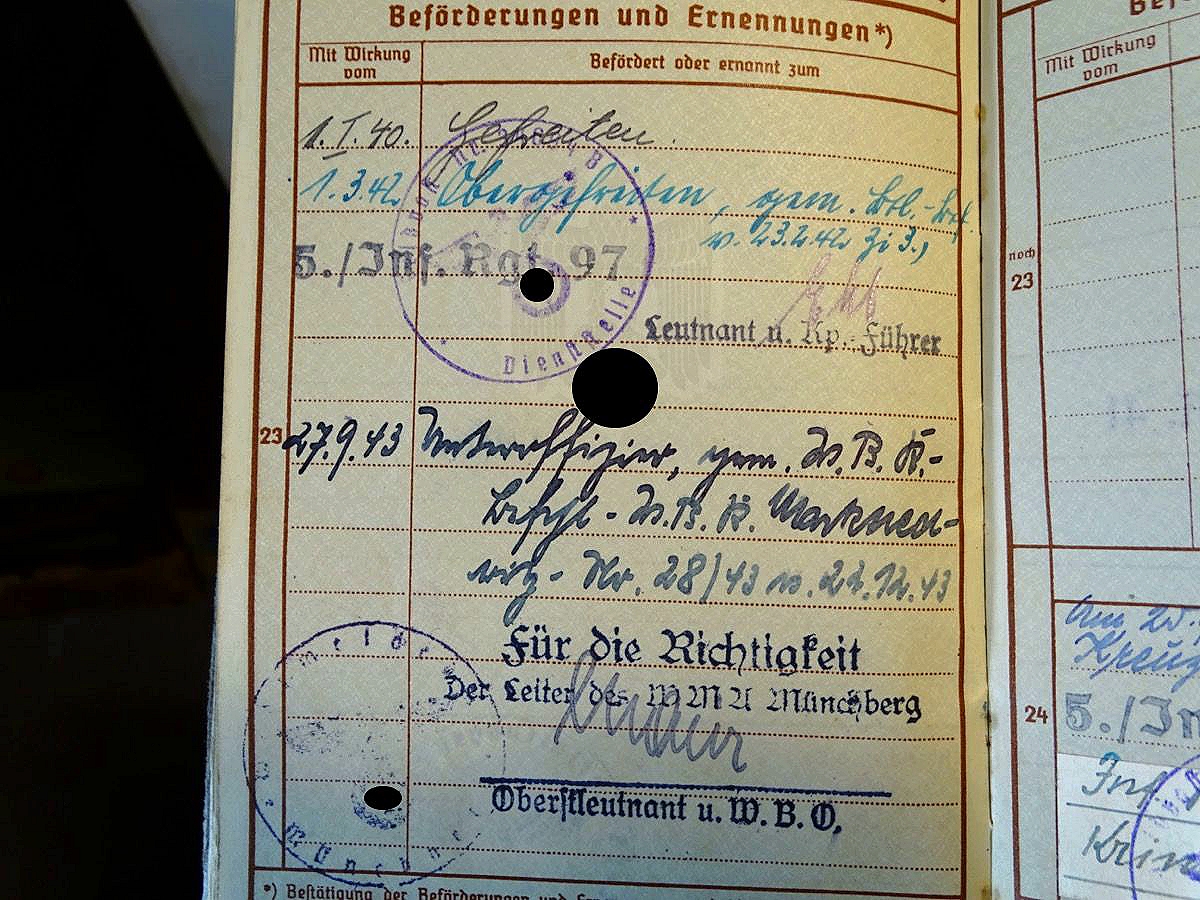 Beförderungen und Ernennungen*)
Mit Wirkung
vom
Befördert oder ernannt zum
1.I.40. Gefreiten.
1.3.42 Obergefreiten, gem. Btl.-Bef.
v. 23.2.42 Zi 3.,
5./Inf. Rgt. 97
Dienststelle
Leutnant u. Kp.-Führer
23
27.9.43 Unteroffizier, gem. W.B.K.-
Befehl - W.B.K. Marktred-
witz - Nr. 28/43 v. 22.12.43
Für die Richtigkeit
Der Leiter des W M A Münchberg
Oberstleutnant u. W.B.O.
*) Bestätigung der Beförderungen und
Mit Wirkung
vom
noch
23
24
Am 20.
5./In